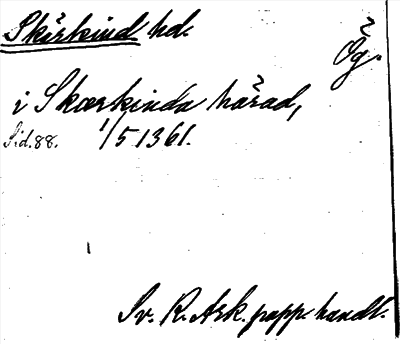 Skärkind hd.
Ög.
i Skærkinda hårad,
Sid. 88. 1/5 1361.
Sv. R. Ark. papp. handl.